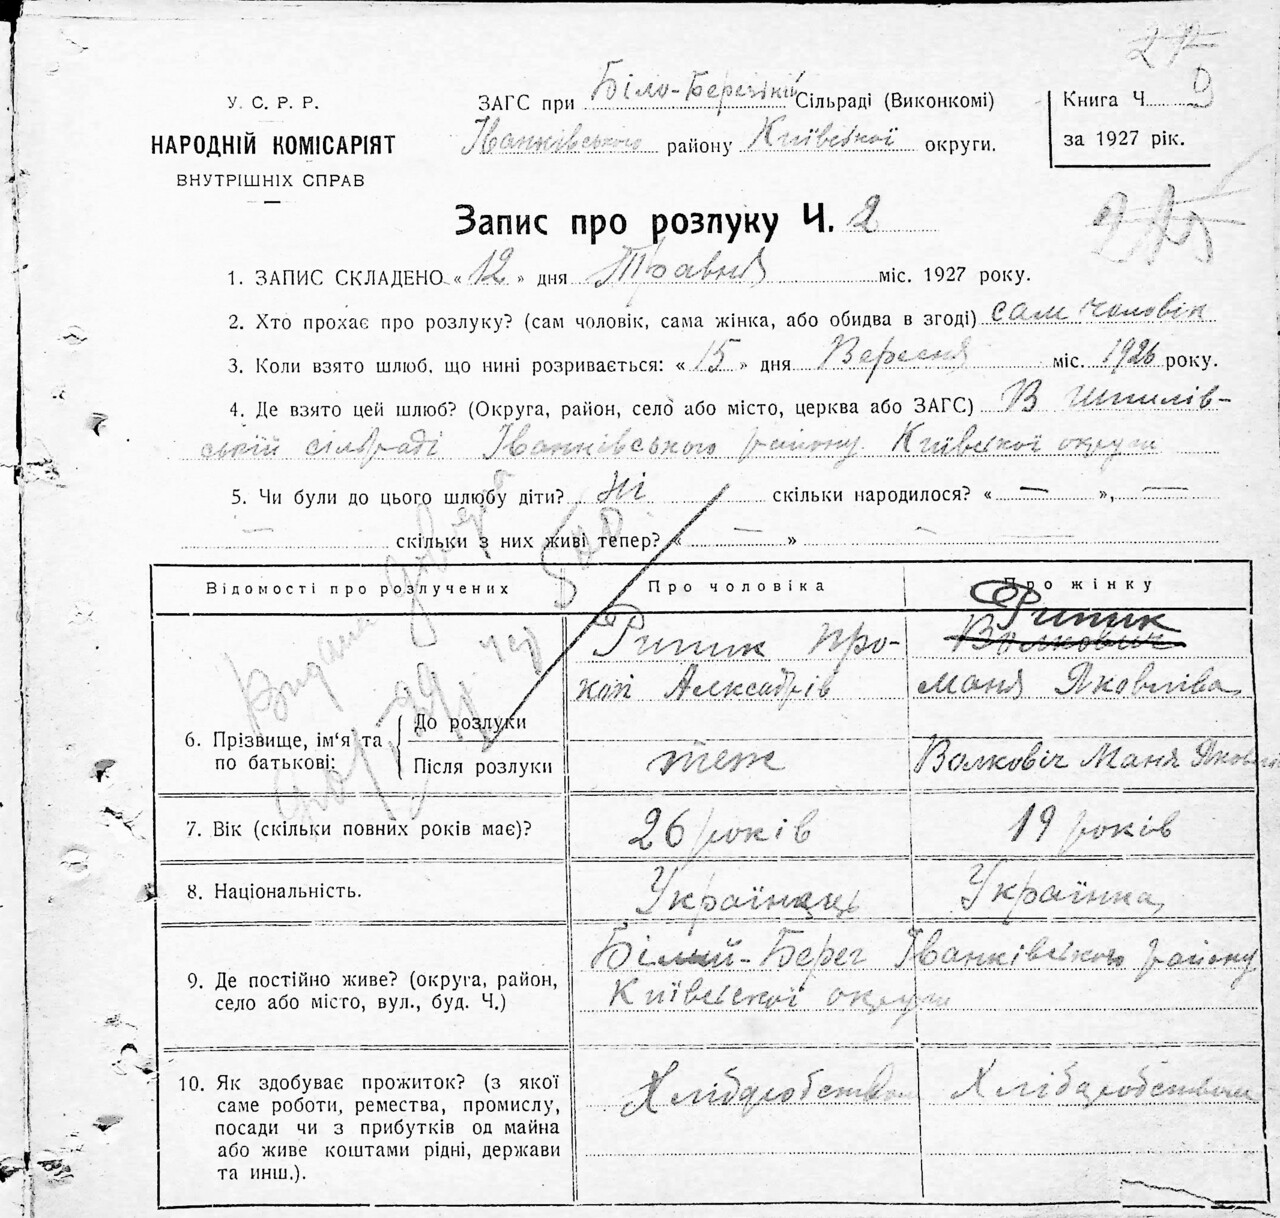 У. С. Р. Р.
НАРОДНІЙ КОМІСАРІЯТ
ВНУТРІШНІХ СПРАВ
ЗАГС при Біло-Березькій Сільраді (Виконкомі)
Іванківського району Київської округи.
Книга Ч. 9
за 1927 рік.
Запис про розлуку Ч. 2
1. ЗАПИС СКЛАДЕНО „12" дня Травня міс. 1927 року.
2. Хто прохає про розлуку? (сам чоловік, сама жінка, або обидва в згоді) сам чоловік
3. Коли взято шлюб, що нині розривається: „15" дня Вересня міс. 1926 року.
4. Де взято цей шлюб? (Округа, район, село або місто, церква або ЗАГС) В Шпилів-
ській сільраді Іванківського району Київської округи
5. Чи були до цього шлюбу діти? Ні скільки народилося? „ — ", —
— скільки з них живі тепер? „ — " —
Відомості про розлучених
Про чоловіка
Про жінку
6. Прізвище, ім'я та по батькові:
До розлуки
Після розлуки
Рипик Про-
коп Алексадрів
Рипик
Волковіч
Маня Яковліва
теж
Волковіч Маня
7. Вік (скільки повних років має)?
26 років
19 років
8. Національність.
Українець
Українка
9. Де постійно живе? (округа, район,
село або місто, вул., буд. Ч.)
Білий-Берег Іванківського району
Київської округи
10. Як здобуває прожиток? (з якої
саме роботи, ремества, промислу,
посади чи з прибутків од майна
або живе коштами рідні, держави
та инш.).
Хлібробством
Хліборобством